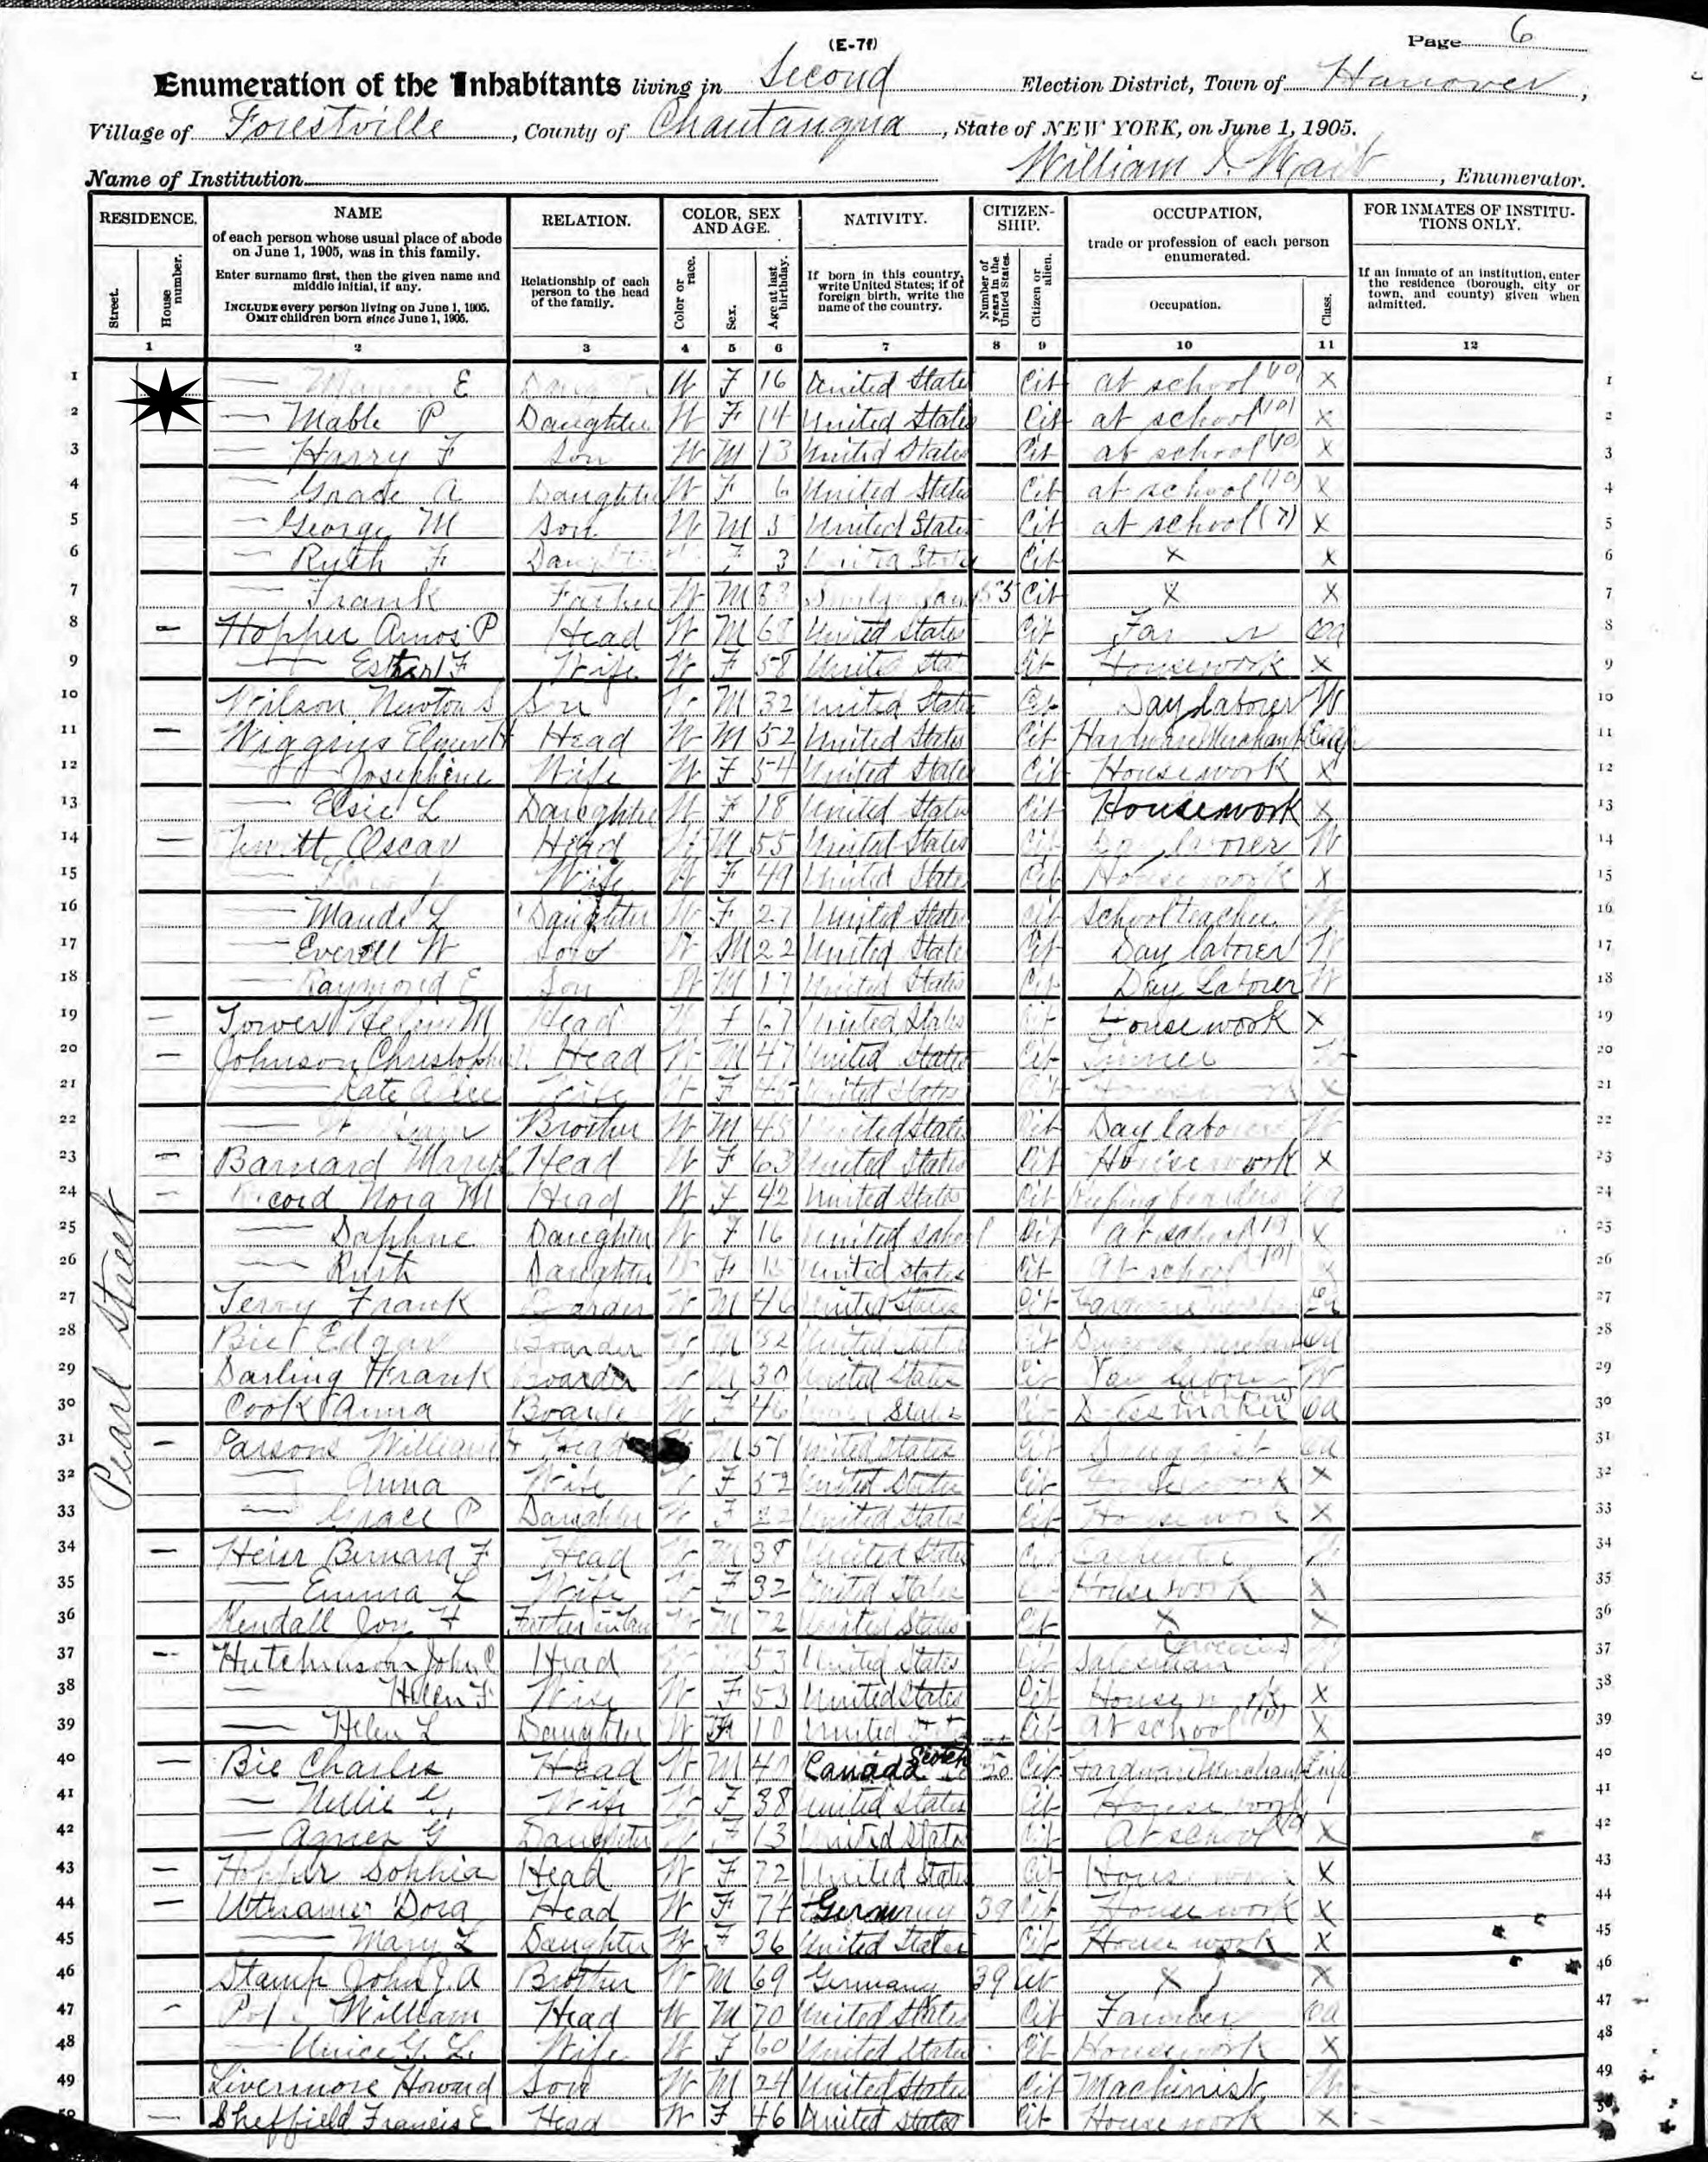 (E-7f)
Page 6
Enumeration of the Inhabitants living in Second Election District, Town of Hanover,
Village of Forestville, County of Chautauqua, State of NEW YORK, on June 1, 1905.
Name of Institution William Wait, Enumerator.
RESIDENCE. NAME RELATION. COLOR, SEX AND AGE. NATIVITY. CITIZEN-SHIP. OCCUPATION, FOR INMATES OF INSTITU-TIONS ONLY.
of each person whose usual place of abode on June 1, 1905, was in this family.
trade or profession of each person enumerated.
Enter surname first, then the given name and middle initial, if any.
INCLUDE every person living on June 1, 1905. OMIT children born since June 1, 1905.
Street. House number. Relationship of each person to the head of the family. Color or race. Sex. Age at last birthday. If born in this country, write United States; if of foreign birth, write the name of the country. Number of years in the United States. Citizen or alien. Occupation. Class. If an inmate of an institution, enter the residence (borough, city or town, and county) given when admitted.
1 2 3 4 5 6 7 8 9 10 11 12
Pearl Street
1 — E W F 16 United States Cit at school (10) X 1
2 — Mable P Daughter W F 14 United States Cit at school (10) X 2
3 — Harry F Son W M 13 United States Cit at school (10) X 3
4 — Grace A Daughter W F 6 United States Cit at school (10) X 4
5 — George M Son W M 5 United States Cit at school (7) X 5
6 — Ruth F Daughter F 3 United States Cit X X 6
7 — Frank Father W M 83 Cit X X 7
8 — Hopper Amos P Head W M 68 United States Cit Oa 8
9 — Esther F Wife W F 58 United Stat Cit Housework X 9
10 Wilson Newton S Son W M 32 United States Cit Day laborer W 10
11 — Wiggins Elmer H Head W M 52 United States Cit Hardware Merchant 11
12 — Josephine Wife W F 54 United States Cit Housework X 12
13 — Elsie L Daughter W F 18 United States Cit Housework X 13
14 — Oscar Head W M 55 United States Cit Day laborer W 14
15 — Wife W F 49 United States Cit Housework X 15
16 — Maude L Daughter W F 27 United States Cit School teacher W 16
17 — Everett W Son W M 22 United States Cit Day laborer W 17
18 — Raymond E Son W M 17 United States Cit Day Laborer W 18
19 — Tower Helen M Head W F 67 United States Cit Housework X 19
20 — Johnson Christopher Head W M 47 United States Cit Tinner W 20
21 — Kate Alice Wife W F United States Cit X 21
22 — Brother W M United States Cit Day laborer W 22
23 — Barnard Mary Head W F 63 United States Cit Housework X 23
24 — Ricord Nora M Head W F 42 United States Cit Keeping boarders 24
25 — Daphne Daughter W F 16 United Cit at school X 25
26 — Ruth Daughter W F United States Cit at school (10) X 26
27 Terry Frank Boarder W M 46 United States Cit 27
28 Edgar Boarder W M 32 United Cit 28
29 Darling Frank Boarder W M 30 United States Cit Day laborer W 29
30 Cook Anna Boarder W F 46 States Cit Dressmaker at home Oa 30
31 — Parsons William Head M 57 United States Cit Druggist Oa 31
32 — Anna Wife W F 52 United States Cit Housework X 32
33 — Grace P Daughter W F 22 United States Cit Housework X 33
34 — Heier Bernard F Head W M 38 United States Cit Carpenter W 34
35 — Emma L Wife W F 32 United States Housework X 35
36 Kendall F Father in Law W M 72 United States Cit X X 36
37 — Hutchinson John C Head W 53 United States Cit Salesman Groceries W 37
38 — Helen F Wife W F 53 United States Cit Housework X 38
39 — Helen L Daughter W F 10 United States Cit at school X 39
40 — Bie Charles Head W M 40 Canada Scotch 20 Cit Hardware Merchant 40
41 — Nellie G. Wife W F 38 United States Cit Housework 41
42 — Agnes G Daughter W F 13 United States Cit At school X 42
43 — Hopper Sophia Head W F 72 United States Cit House X 43
44 — Dora Head W F 74 Germany 39 Cit House work X 44
45 — Mary L Daughter W F 36 United States Cit House work X 45
46 Stamp John J. A Brother W M 69 Germany 39 Cit X X 46
47 — William Head W M 70 United States Cit Farmer Oa 47
48 — Wife W F 60 United States Cit Housework X 48
49 Livermore Howard Son W M 24 United States Cit Machinist W 49
50 — Sheffield Francis E Head W F 46 United States Cit House work X